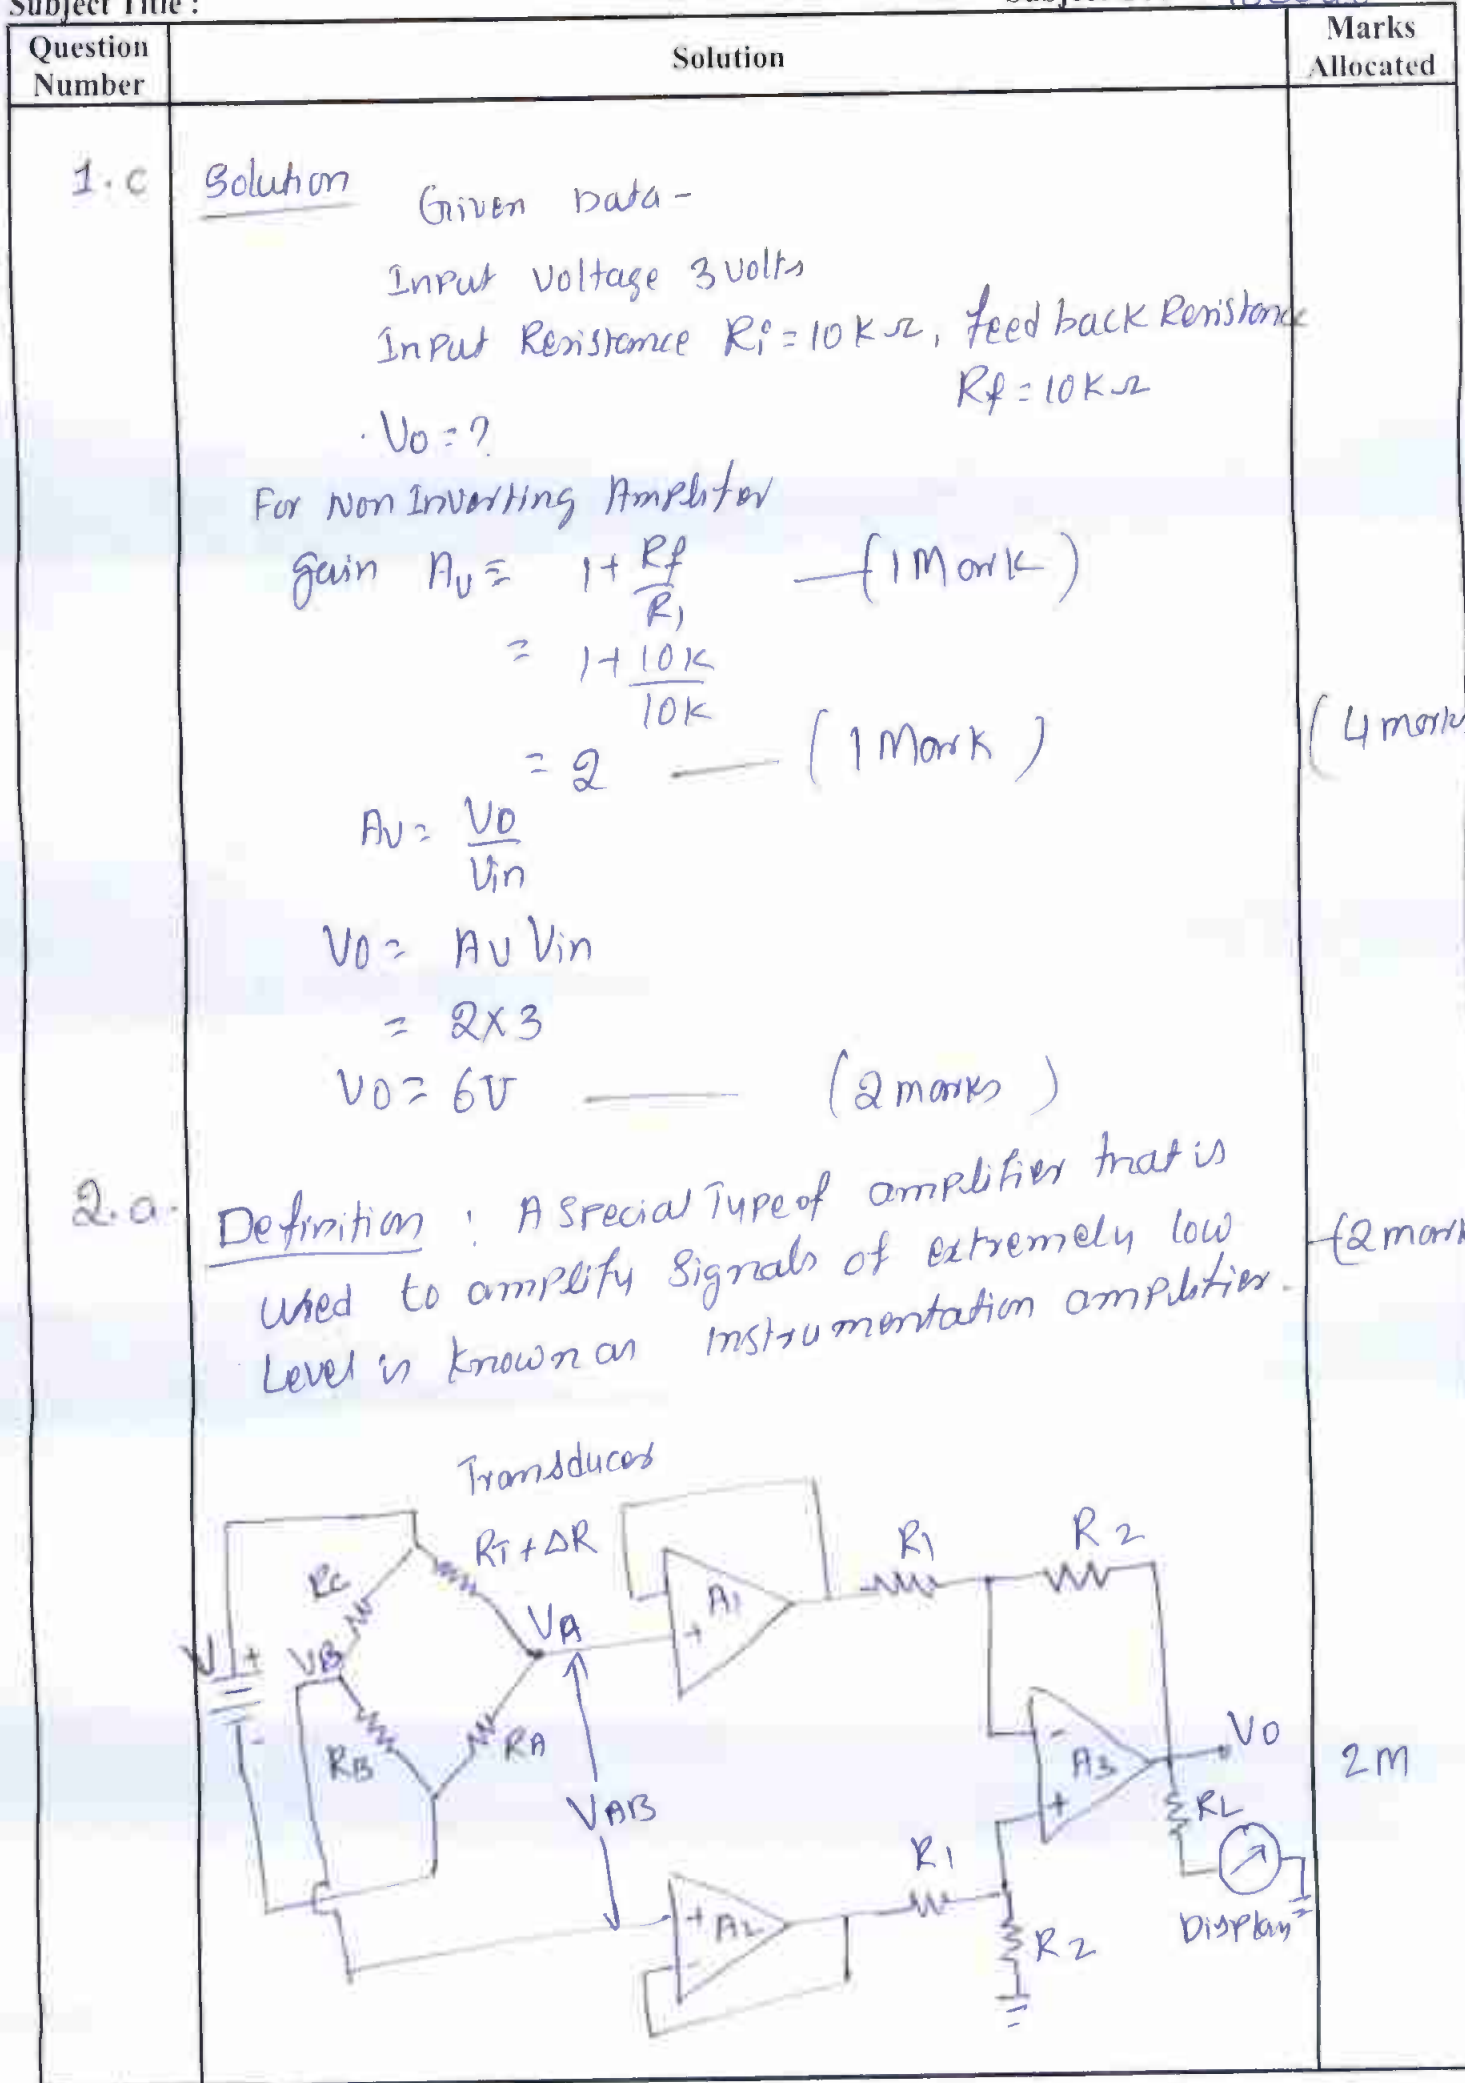 Subject Title :
Question Number
Solution
Marks Allocated
1.c
Solution
Given Data -
Input Voltage 3 Volts
Input Resistance Ri = 10KΩ, feed back Resistance
Rf = 10KΩ
Vo = ?
For Non Inverting Amplifer
gain Av = 1 + Rf/R1 — (1 Mark)
= 1 + 10K/10K
= 2 — (1 Mark)
(4 marks
Av = Vo/Vin
Vo = Av Vin
= 2 X 3
Vo = 6V — (2 marks)
2.a.
Definition : A Special Type of amplifier that is
used to amplify Signals of extremely low
Level is known as instrumentation amplifier.
(2 mark
Transducer
RT + ΔR
R1
R2
RC
A1
+
VA
V
+
VB
-
RB
RA
VAB
-
A3
+
Vo
2M
RL
R1
+
A2
-
R2
Display